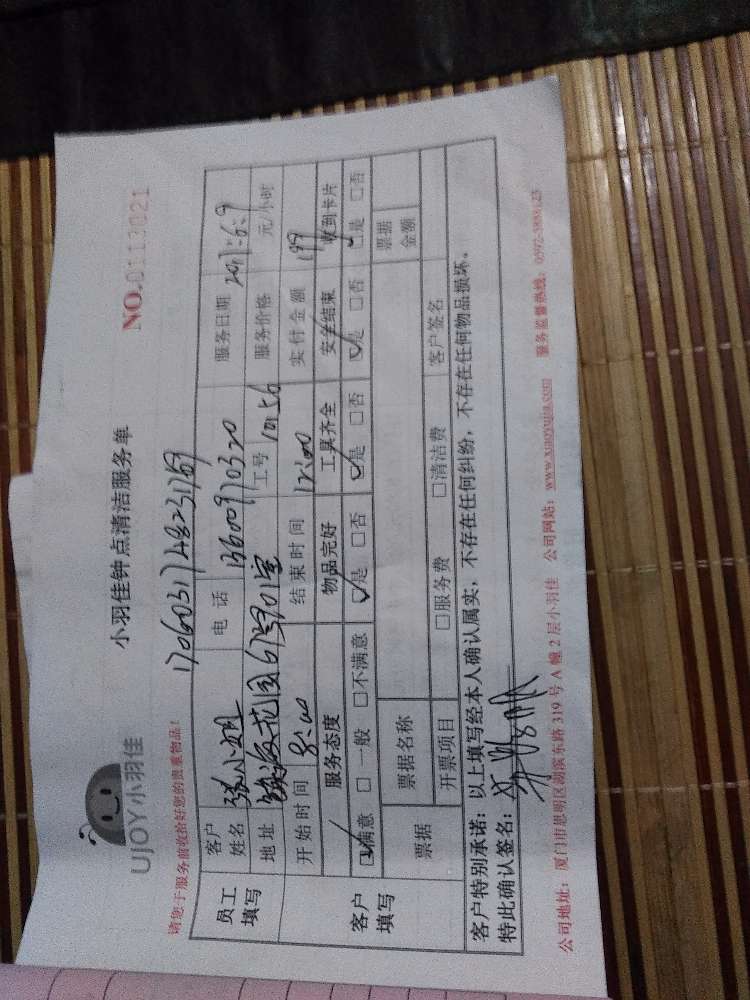 UJOY小羽佳
小羽佳钟点清洁服务单
NO.0113021
请您于服务前收拾好您的贵重物品!
员工填写
客户姓名 张小姐 电话 13600910320 服务日期 2017.6.9
地址 花园 室 工号 服务价格 元/小时
客户填写
开始时间 8:00 结束时间 12:00 实付金额 199
服务态度 物品完好 工具齐全 安全结束 收到卡片
☑满意 □一般 □不满意 ☑是 □否 ☑是 □否 ☑是 □否 ☑是 □否
票据 票据名称 票据金额
开票项目 □服务费 □清洁费 客户签名
客户特别承诺:以上填写经本人确认属实,不存在任何纠纷,不存在任何物品损坏。
特此确认签名:
公司地址:厦门市思明区湖滨东路319号A幢2层小羽佳 公司网站:www.xiaoyujia.com 服务监督热线:0592-3888123